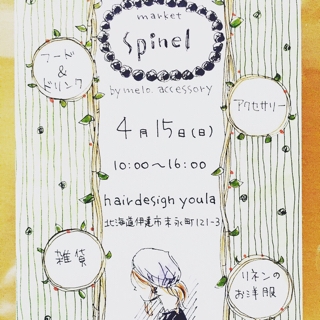 market
Spinel
by melo. accessory
フード
&
ドリンク
アクセサリー
4月15日(日)
10:00〜16:00
hairdesign youla
北海道伊達市末永町121-3
雑貨
リネンの
お洋服